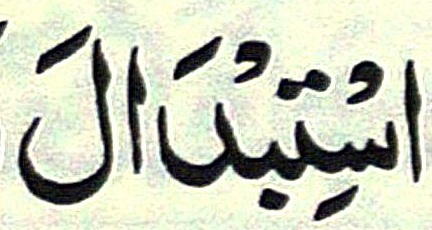 اسْتِبْدَالَ